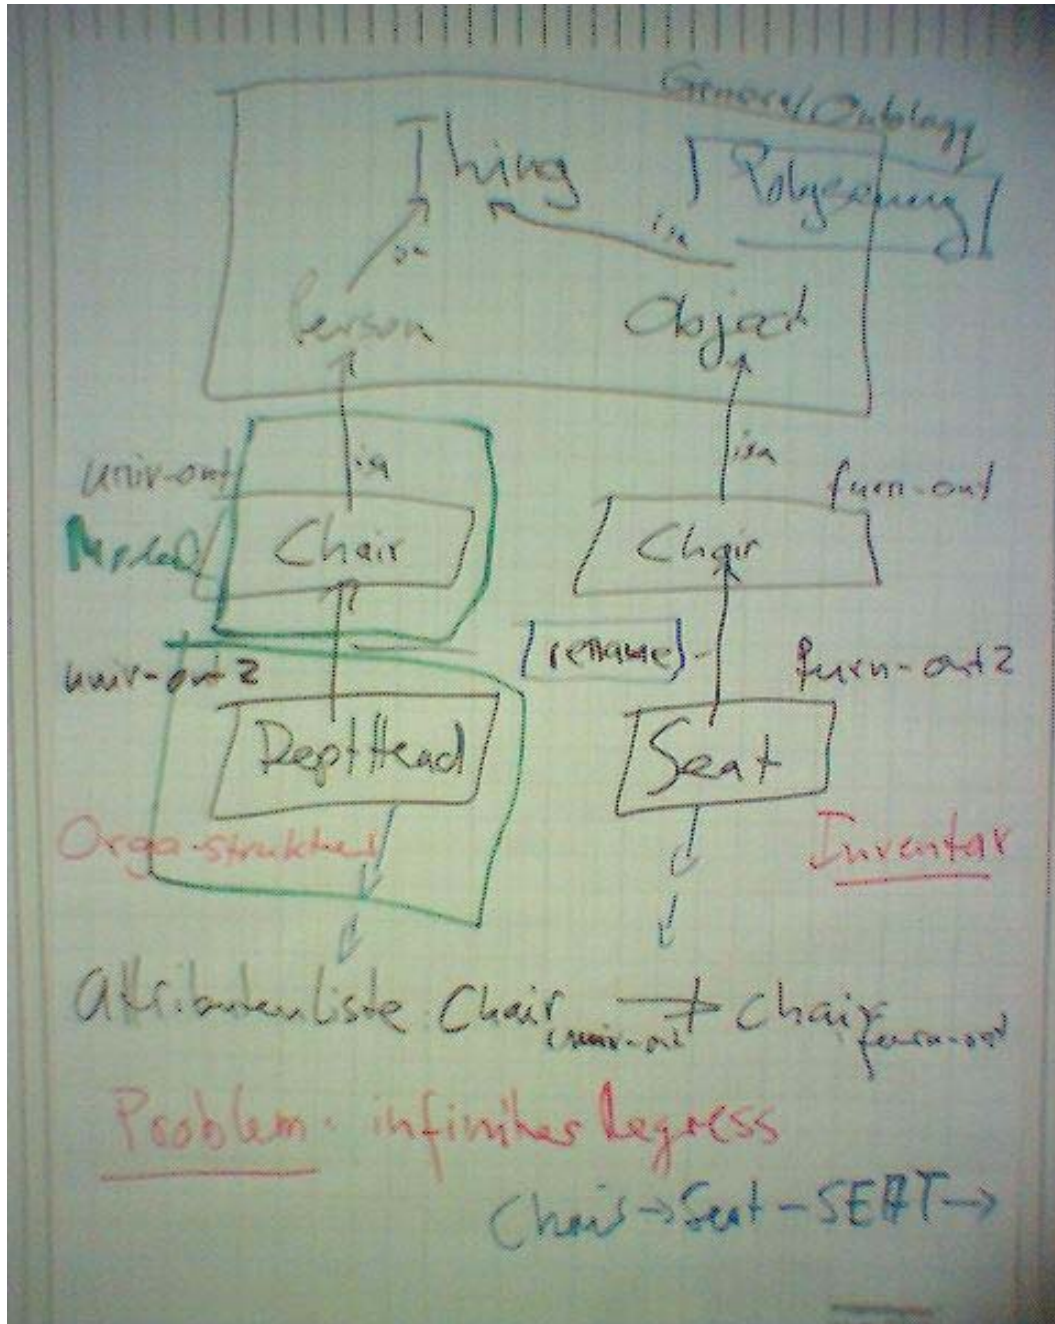 General Ontology
Thing
Polysemy
isa
Person
Object
isa
isa
univ-ont
furn-ont
Chair
Chair
univ-ont2
[rename]
furn-ont2
DeptHead
Seat
Orga-struktur
Inventar
Attributenliste Chair univ-ont → Chair furn-ont
Problem: infiniter Regress
Chair → Seat - SEAT →